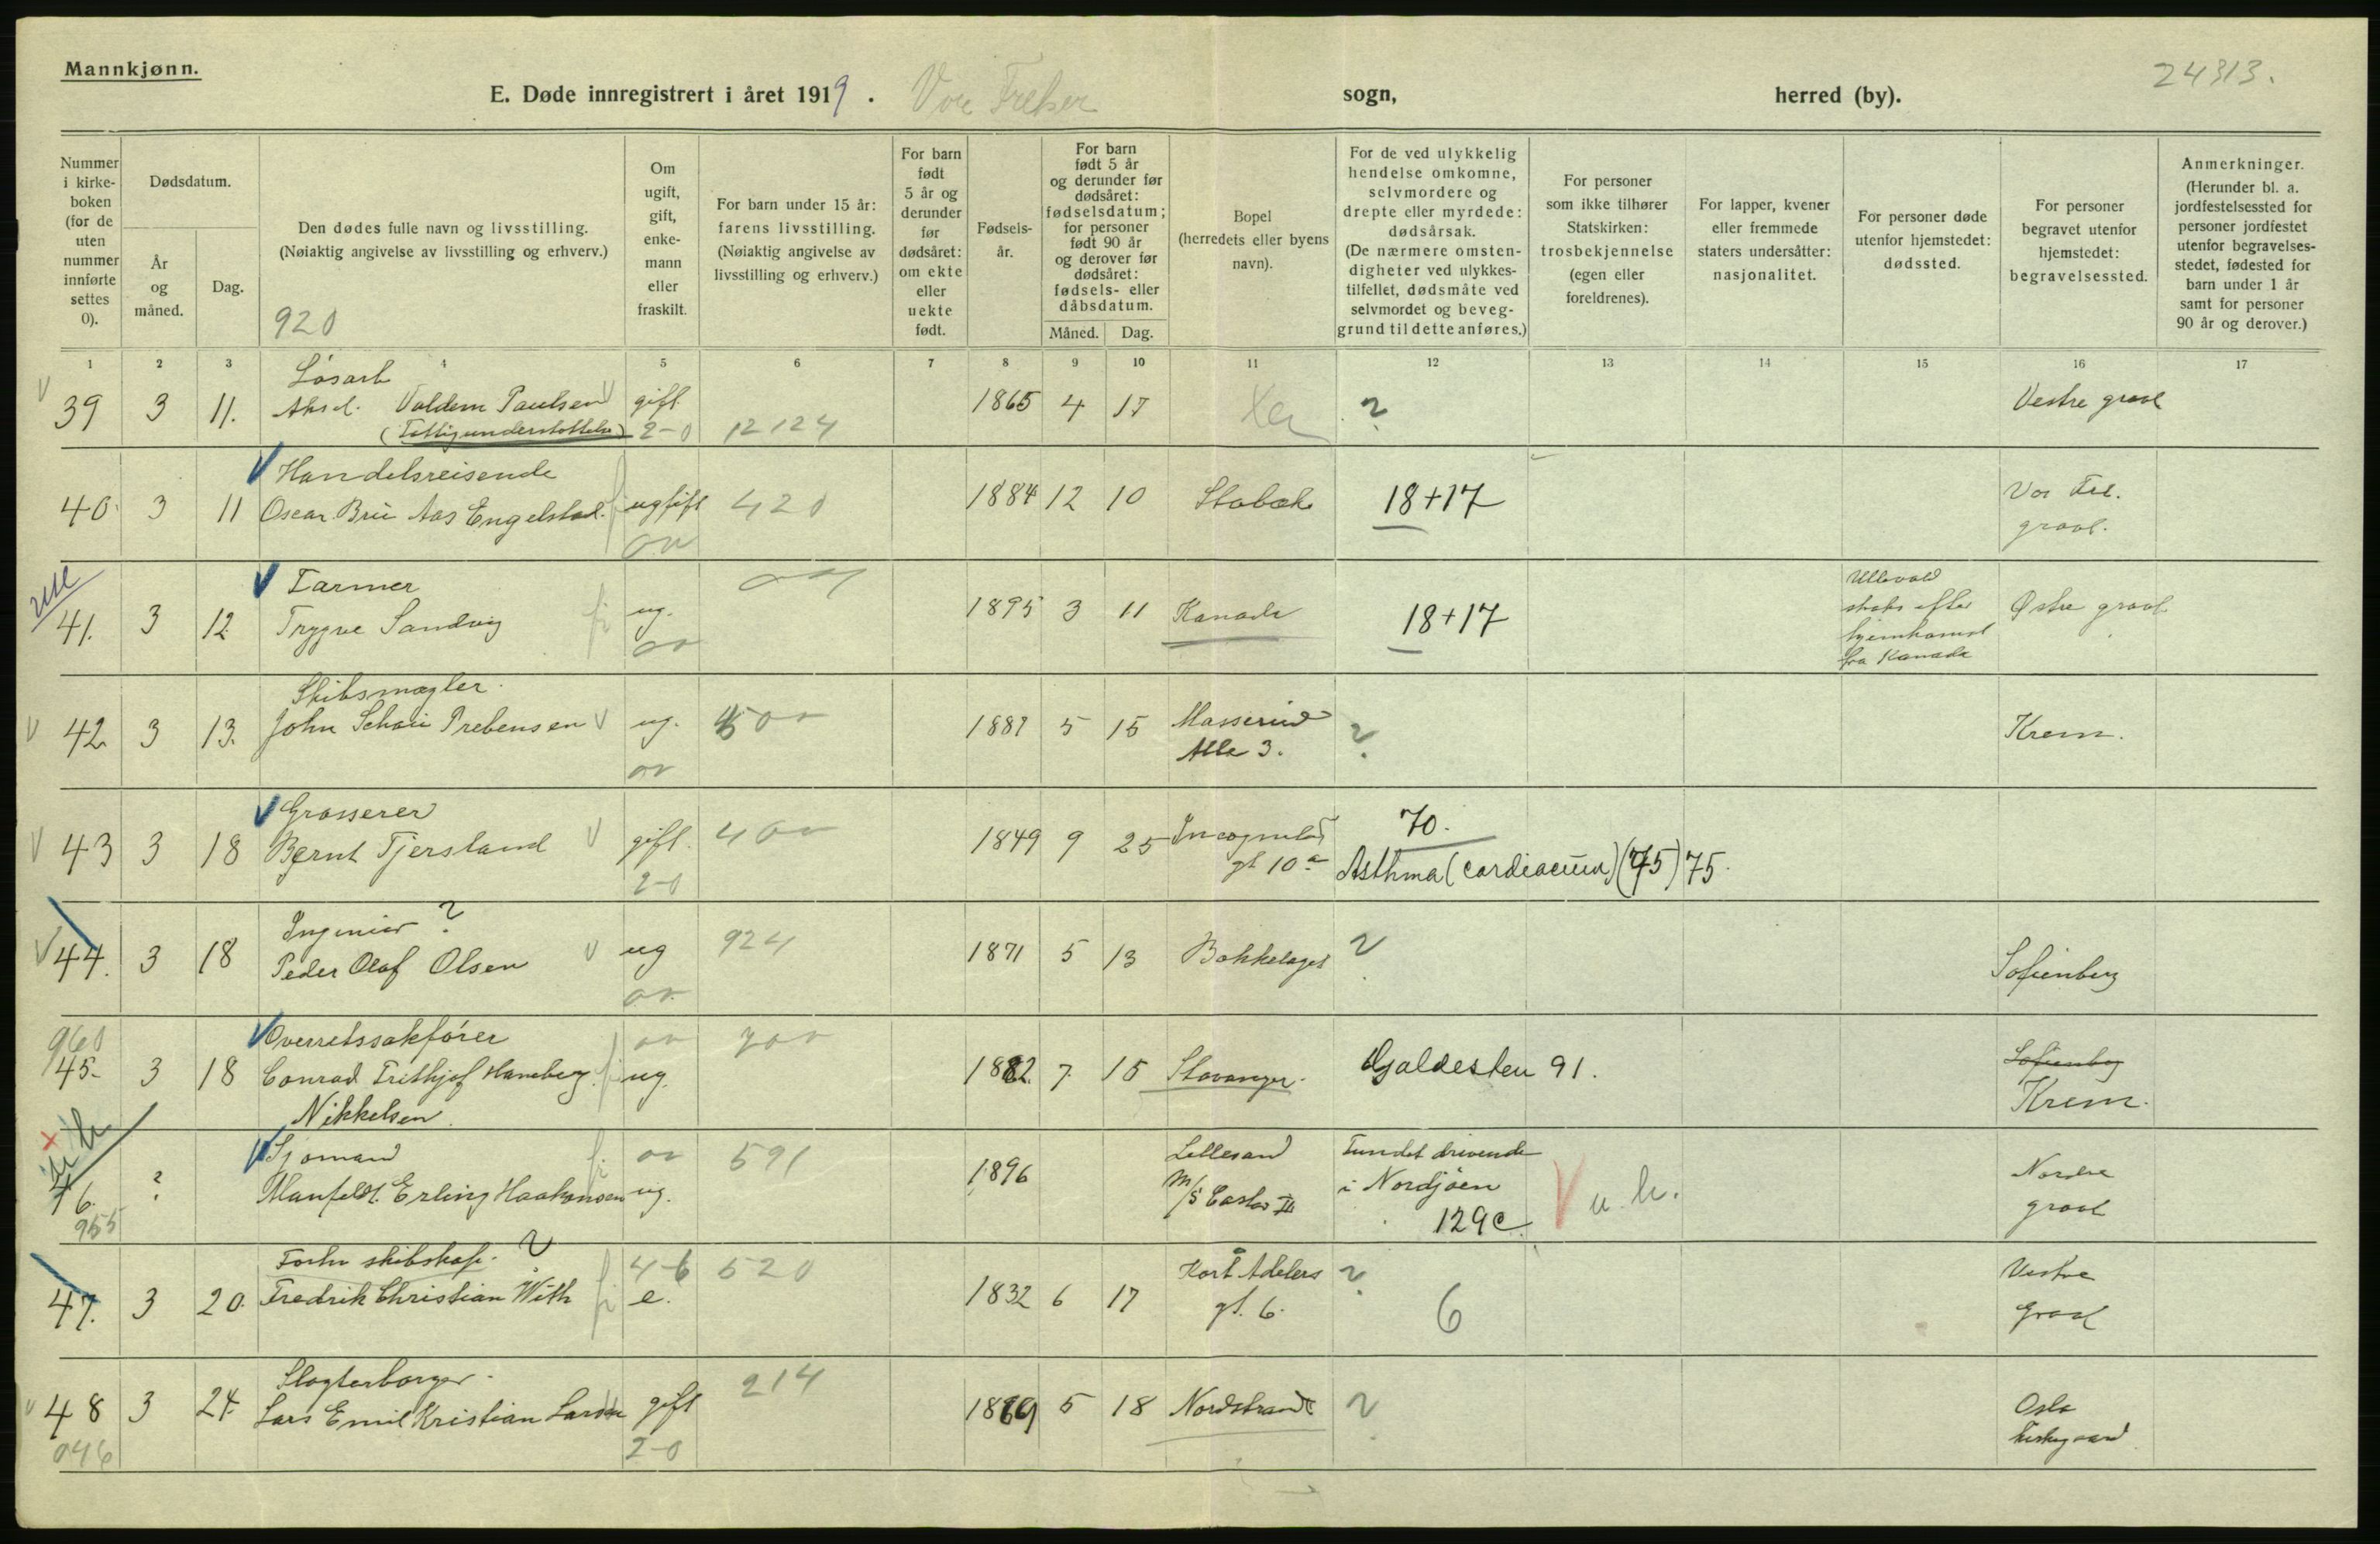 Mannkjønn.
24313.
E. Døde innregistrert i året 1919. Vor Frelser sogn, herred (by).
Nummer i kirkeboken (for de uten nummer innførte settes 0).
Dødsdatum.
År og måned.
Dag.
Den dødes fulle navn og livsstilling.
(Nøiaktig angivelse av livsstilling og erhverv.)
920
Om ugift, gift, enkemann eller fraskilt.
For barn under 15 år: farens livsstilling.
(Nøiaktig angivelse av livsstilling og erhverv.)
For barn født 5 år og derunder før dødsåret: om ekte eller uekte født.
Fødselsår.
For barn født 5 år og derunder før dødsåret: fødselsdatum; for personer født 90 år og derover før dødsåret: fødsels- eller dåbsdatum.
Måned. Dag.
Bopel
(herredets eller byens navn).
For de ved ulykkelig hendelse omkomne, selvmordere og drepte eller myrdede: dødsårsak.
(De nærmere omstendigheter ved ulykkestilfellet, dødsmåte ved selvmordet og beveggrund til dette anføres.)
For personer som ikke tilhører Statskirken: trosbekjennelse (egen eller foreldrenes).
For lapper, kvener eller fremmede staters undersåtter: nasjonalitet.
For personer døde utenfor hjemstedet: dødssted.
For personer begravet utenfor hjemstedet: begravelsessted.
Anmerkninger.
(Herunder bl. a. jordfestelsessted for personer jordfestet utenfor begravelsesstedet, fødested for barn under 1 år samt for personer 90 år og derover.)
1 2 3 4 5 6 7 8 9 10 11 12 13 14 15 16 17
Løsarb
39 3 11. Aksel. Valdem Paulsen gift 1865 4 17 ? Vestre gravl
(Fattigunderstøttelse) 2-0 12124
Handelsreisende
40. 3 11 Oscar Brü Aas Engelstad. ugift 420 1884 12 10 Stabæk 18+17 Vor Frl.
gravl.
Farmer
41. 3 12. Trygve Sandvig ug. 1895 3 11 Kanada 18+17 Ullevold
straks efter
hjemkomst
fra Kanada
Østre gravl.
Skibsmægler.
42. 3 13. John Schou Prebensen ug. 500 1889 5 15 Masserud
Alle 3.
? Krem.
Grosserer
43 3 18 Bernt Tjersland gift. 400 1849 9 25 Incognito
gt 10 a
2-0
70.
Asthma (cardiacum) (75) 75.
Ingeniør ?
44. 3 18 Peder Olaf Olsen ug 924 1871 5 13 Bækkelaget ? Sofienberg
960
Overretssakfører
45. 3 18 Conrad Frithjof Haneberg ug. 700 1882. 7. 15 Stavanger. Galdesten 91. Sofienberg
Nikkelsen. Krem.
Sjømand
46. ? Manfeldt. Erling Haakonsen ug. 591 1896 Lillesand
M/S Castor III
Fundet drivende
i Nordsjøen
129c
u. h.
Nordre
gravl
955
Forhv skibskapt. ?
47. 3 20. Fredrik Christian With e. 4-6 520 1832 6 17 Kort Adelers
gt. 6.
? 6 Vestre
Gravl
Slagterborger.
48 3 24. Lars Emil Kristian Larsen gift 214 1869 5 18 Nordstrand ? Oslo
kirkegaard
046 2-0